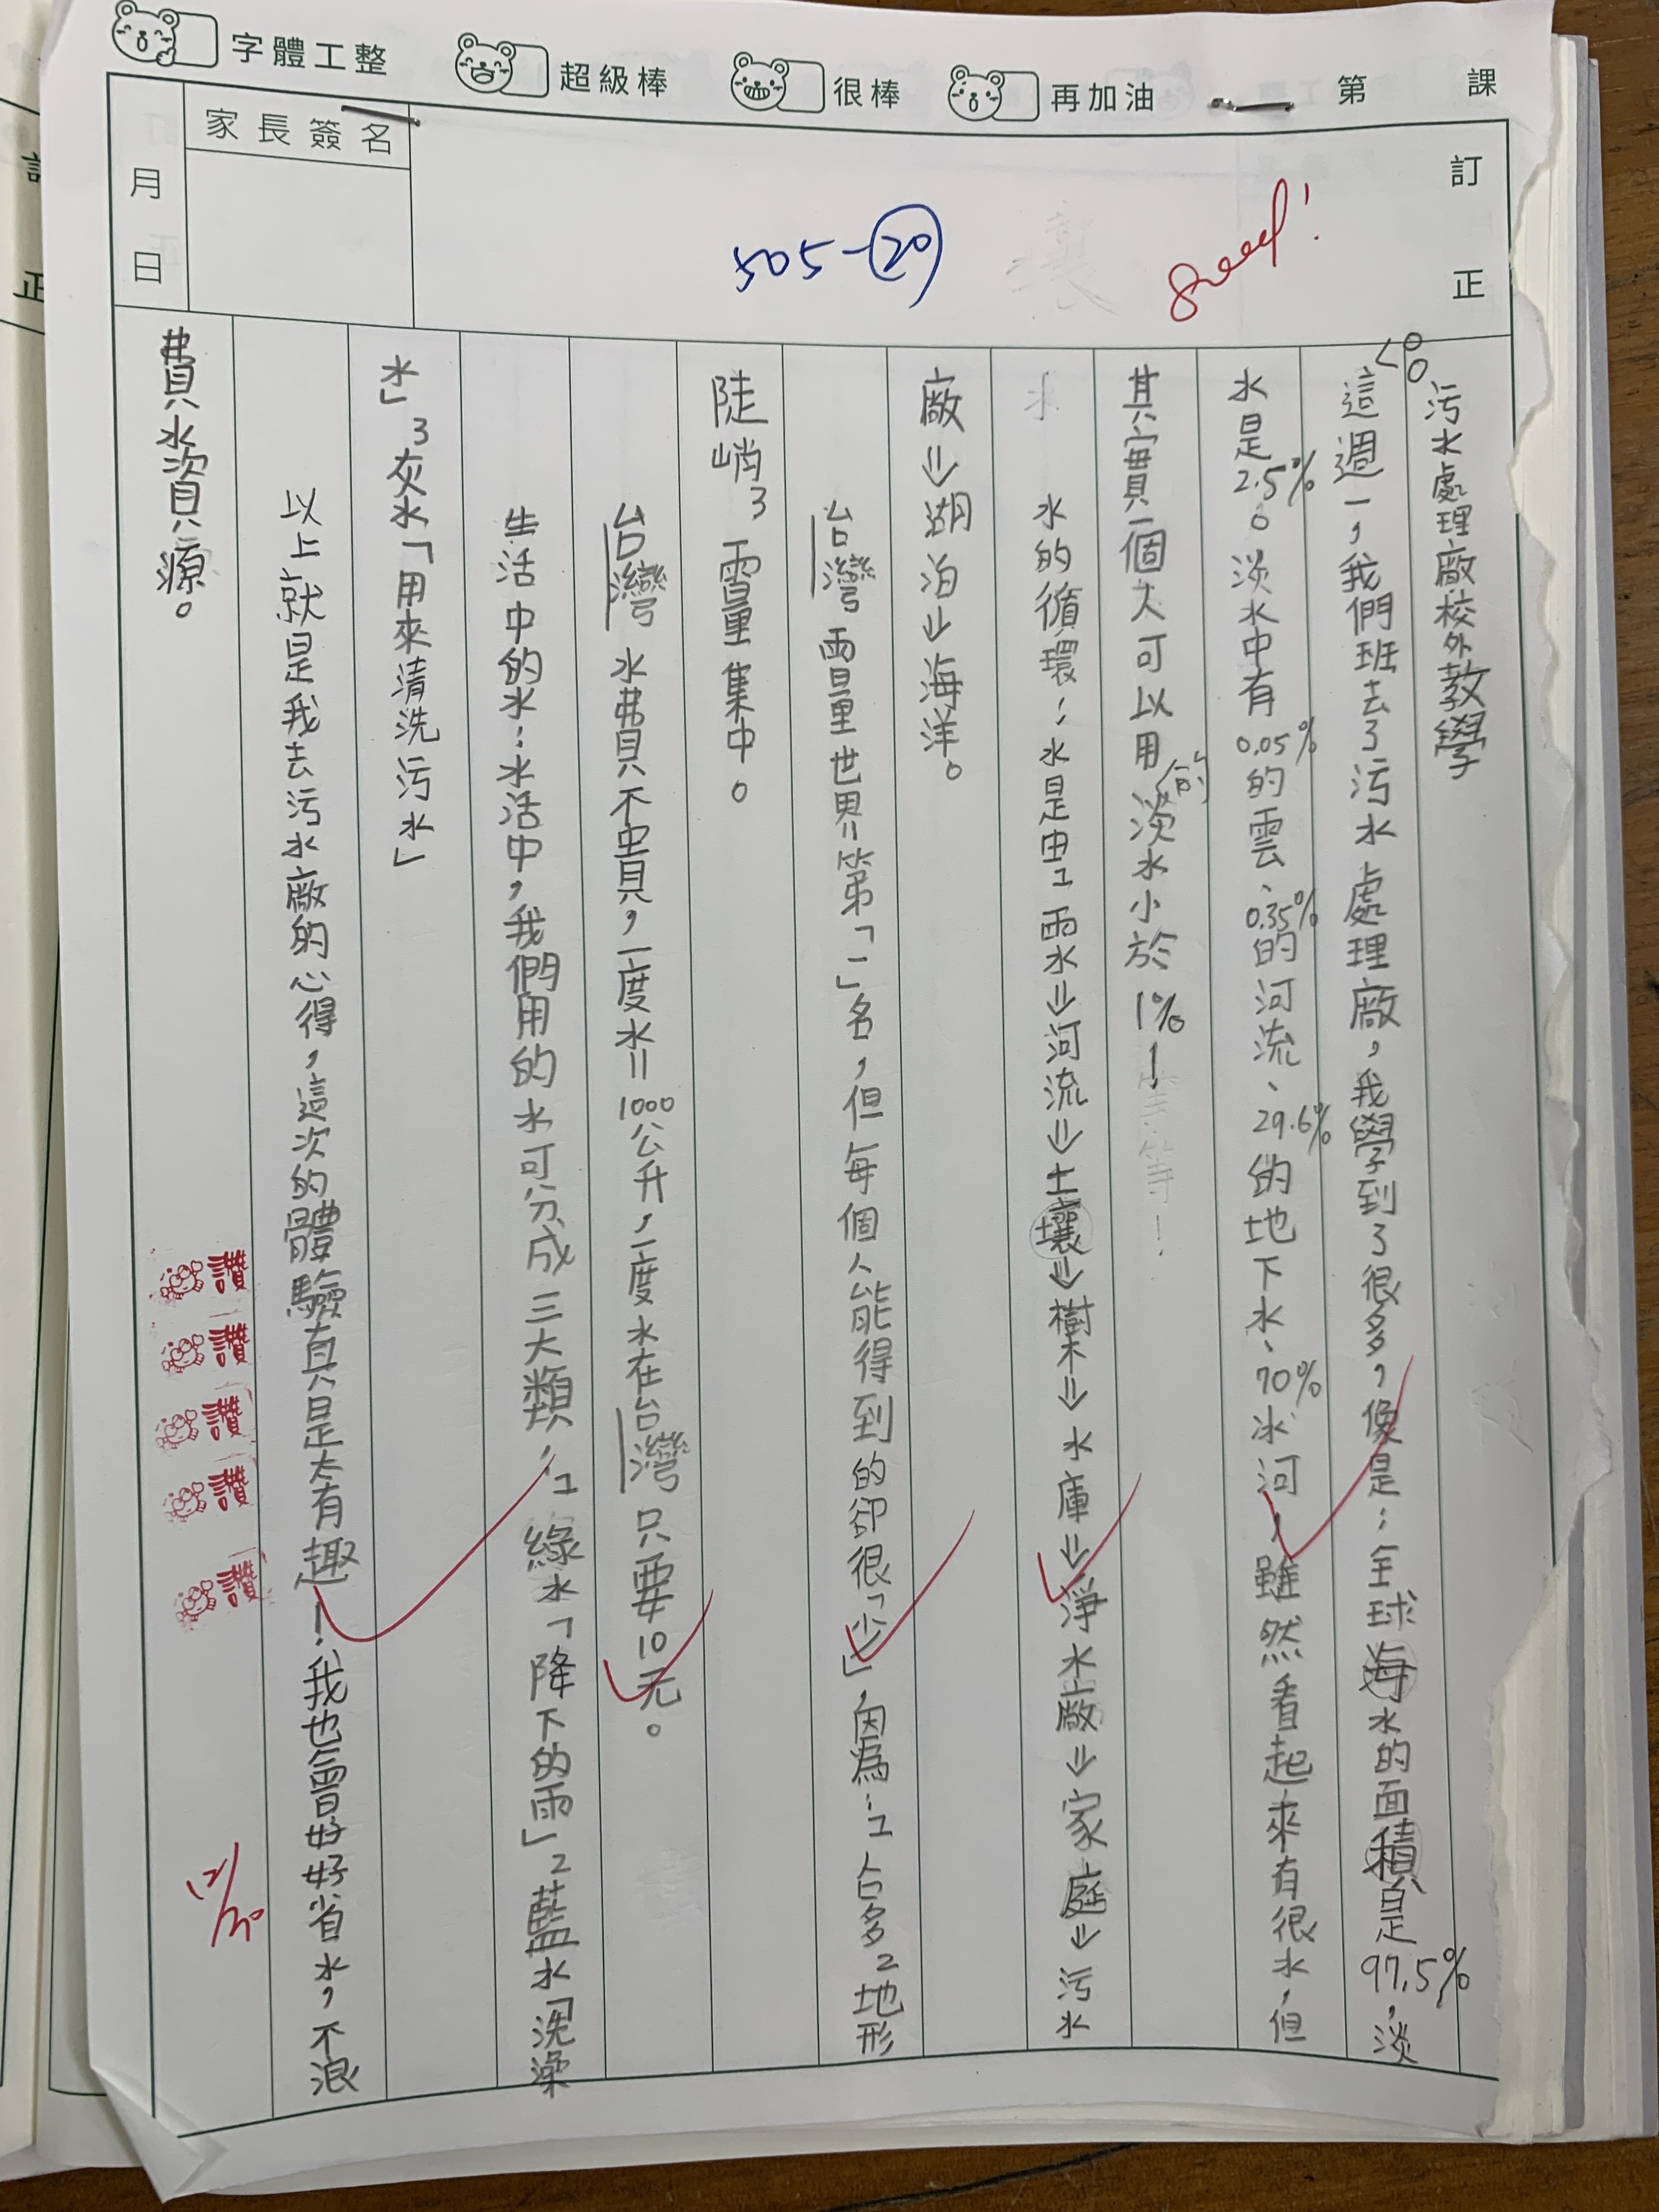 字體工整 超級棒 很棒 再加油 第 課
訂正
家長簽名
月 日
505-20
Good!
污水處理廠校外教學
這週一，我們班去了污水處理廠，我學到了很多，像是：全球海水的面積是97.5%，淡
水是2.5%。淡水中有0.05%的雲、0.35%的河流、29.6%的地下水、70%冰河，雖然看起來有很水，但
其實一個人可以用的淡水小於1%！
水的循環：水是由1雨水⇒河流⇒土壤⇒樹木⇒水庫⇒淨水廠⇒家庭⇒污水
廠⇒湖泊⇒海洋。
台灣雨量世界第「一」名，但每個人能得到的卻很「少」，因為：1台多2地形
陡峭3雨量集中。
台灣水費不貴，一度水=1000公升，一度水在台灣只要10元。
生活中的水：水活中，我們用的水可分成三大類，1綠水「降下的雨」2藍水「洗澡
水」3灰水「用來清洗污水」
以上就是我去污水廠的心得，這次的體驗真是太有趣！我也會好好省水，不浪
費水資源。
讚
讚
讚
讚
讚
12/30